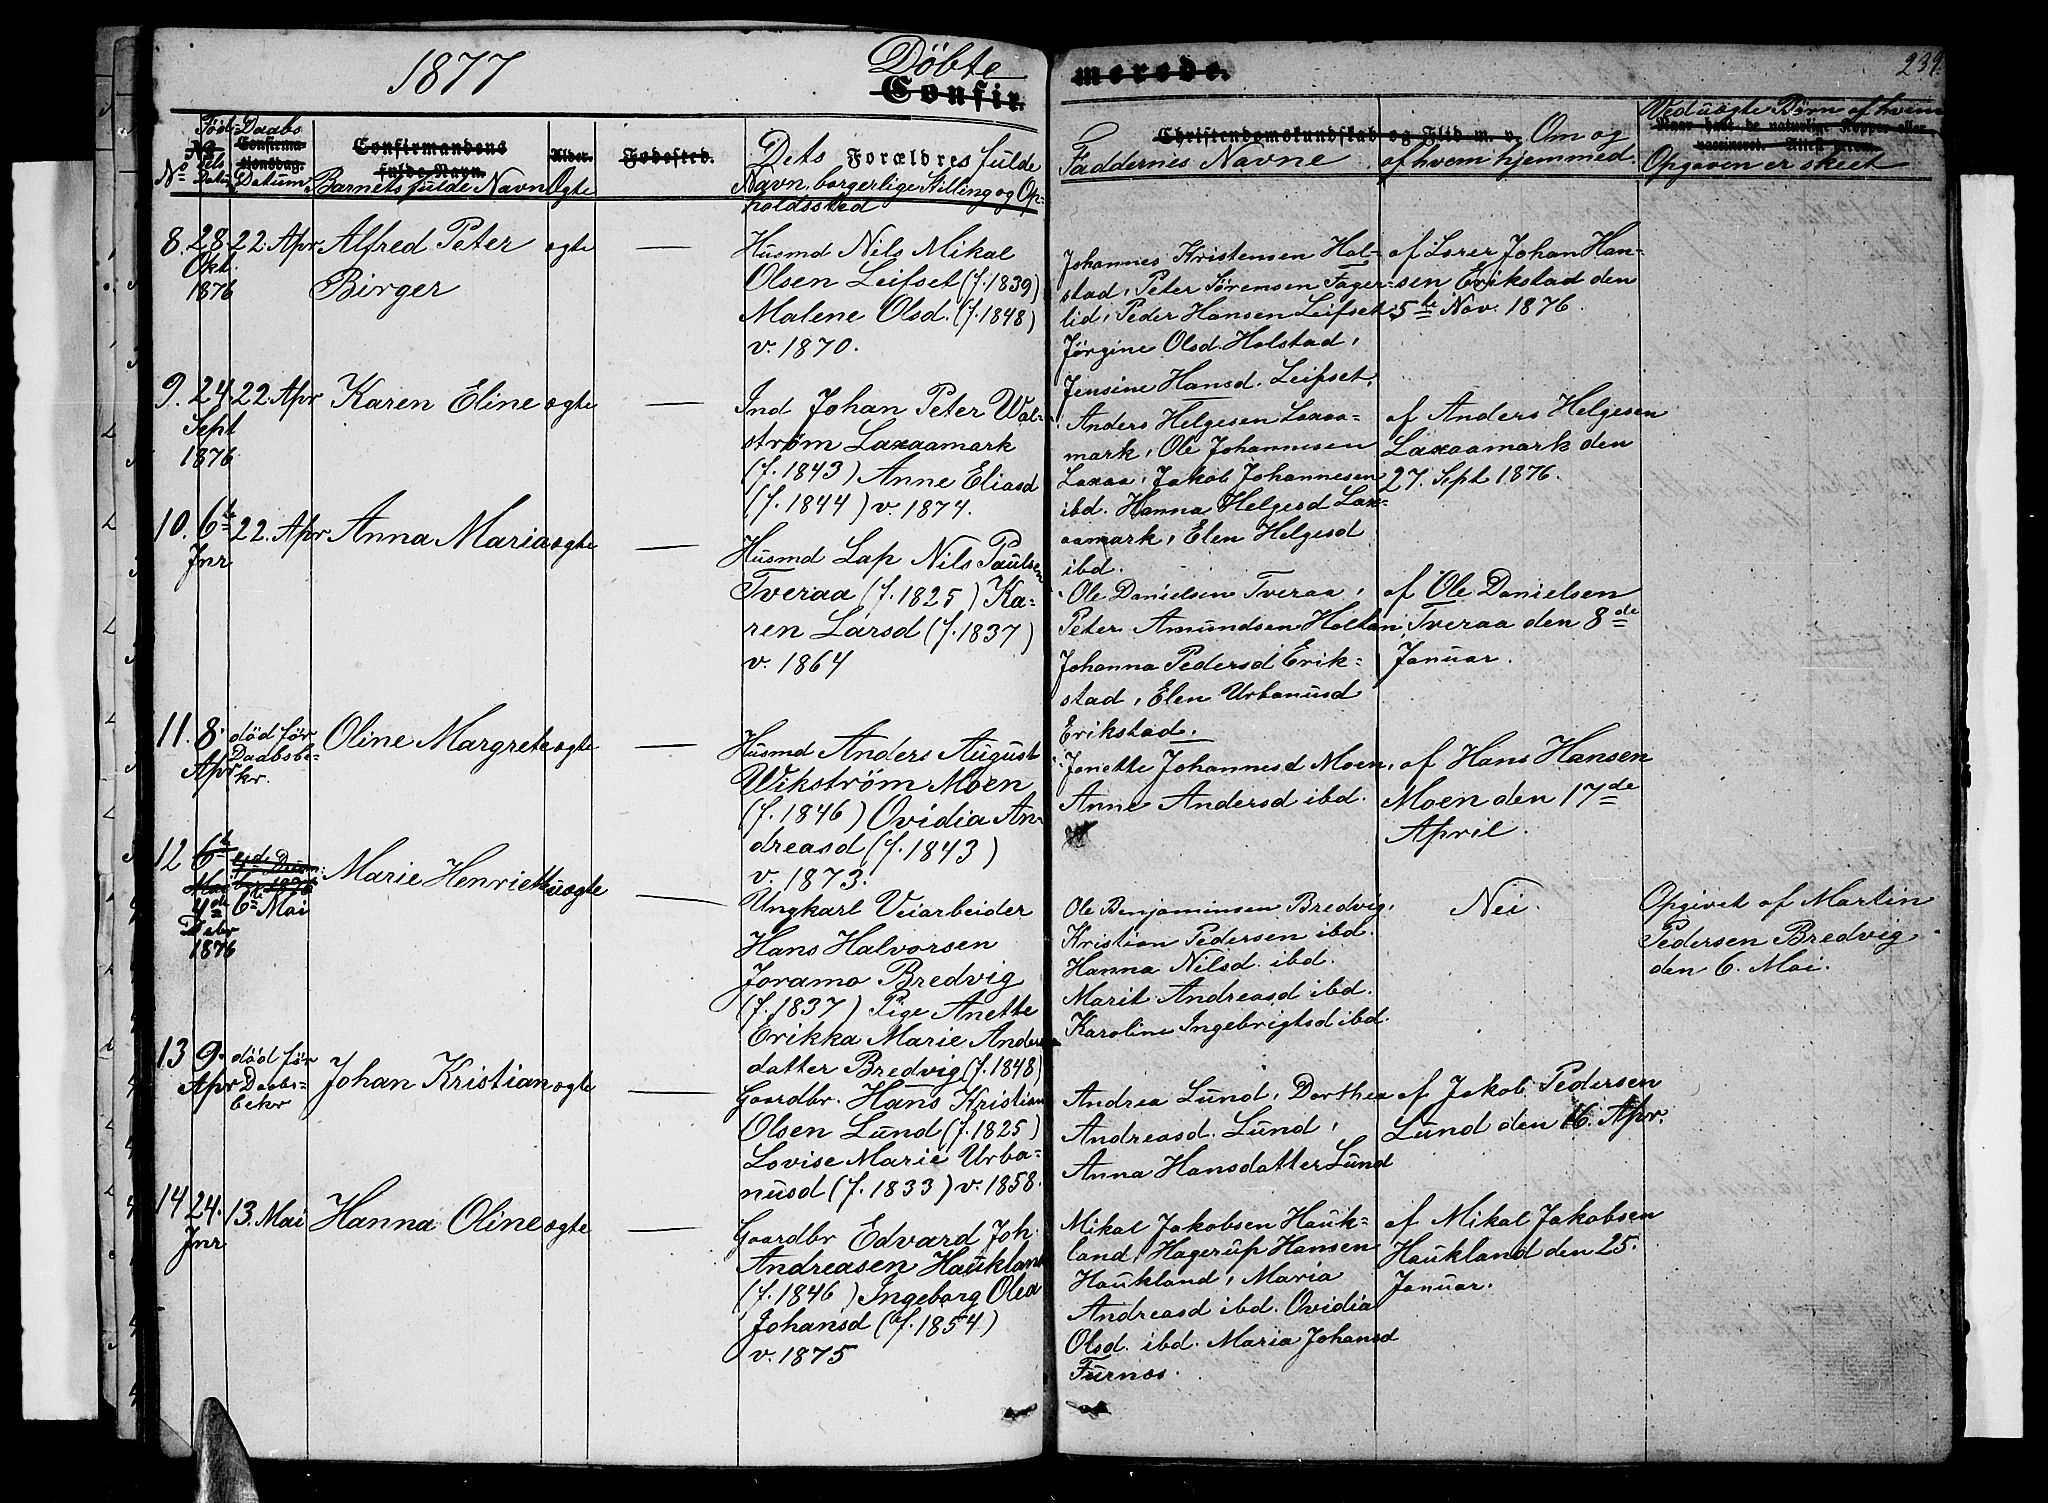 1877
Döbte
Confir-
merede.
239.
No
Föd-
sels
Datum
Daabs
Confirma-
tionsdag.
Datum
Confirmandens
fulde Navn.
Barnets fulde Navn
Alder.
Ogte
Fodested.
Dets Forældres fulde
Navn, borgerlige Stilling og Op-
holdssted
Christendomskundskab og Flid m. v.
Faddernes Navne
Om og
af hvem hjemmed.
Ved uægte Børn af hvem
Naar havt de naturlige Kopper eller
vaccineret. Attest herom.
Opgaven er skeet
8. 28 Okt. 1876
22. Apr
Alfred Peter
Birger
ogte
—
Husmd Nils Mikal
Olsen Leifset (f. 1839)
Malene Olsd. (f. 1848)
v. 1870.
Johannes Kristensen Hol-
stad, Peter Sörensen Fager-
lid, Peder Hansen Leifset
Jörgine Olsd. Holstad,
Jensine Hansd. Leifset,
af Lærer Johan Han-
sen Erikstad den
5te Nov. 1876.
9. 24 Sept 1876
22. Apr
Karen Eline
ogte
—
Ind Johan Peter Wal-
ström Laxaamark
(f. 1843) Anne Eliasd
(f. 1844) v. 1874.
Anders Helgesen Laxaa-
mark, Ole Johannesen
Laxaa, Jakob Johannesen
ibd. Hanna Helgesd Lax-
aamark, Elen Helgesd
ibd.
af Anders Helgesen
Laxaamark den
27. Sept 1876.
10. 6te Jnr
22. Apr
Anna Maria
ogte
—
Husmd Lap Nils Paulsen
Tveraa (f. 1825) Ka-
ren Larsd (f. 1837)
v. 1864
Ole Danielsen Tveraa,
Peter Amundsen Holtan
Johanna Pedersd Erik-
stad, Elen Urbanusd
Erikstad.
af Ole Danielsen
Tveraa den 8de
Januar.
11. 8. Apr
död för
Daabsbe-
kr.
Oline Margrete
ogte
—
Husmd Anders August
Wikström Moen
(f. 1846) Ovidia An-
dreasd (f. 1843)
v. 1873.
Janette Johannesd Moen,
Anne Andersd ibd.
af Hans Hansen
Moen den 17de
April.
12 6te
Mai
4de
Debr
1876
4de Decem-
ber 1876
6te Mai
Marie Henriette
uogte
—
Ungkarl Veiarbeider
Hans Halvorsen
Joramo Bredvig
(f. 1837) Pige Anette
Erikka Marie Anders
datter Bredvig (f. 1848)
Ole Benjaminsen Bredvig,
Kristian Pedersen ibd.
Hanna Nilsd. ibd.
Marit Andreasd ibd.
Karoline Ingebrigtsd ibd.
Nei.
Opgivet af Martin
Pedersen Bredvig
den 6. Mai.
13 9. Apr
död för
Daabs-
bekr
Johan Kristian
ogte
—
Gaardbr. Hans Kristian
Olsen Lund (f. 1825)
Lovise Marie Urba-
nusd (f. 1833) v. 1858.
Andrea Lund, Dorthea
Andreasd. Lund,
Anna Hansdatter Lund
af Jakob Pedersen
Lund den 16. Apr.
14 24. Jnr
13. Mai
Hanna Oline
ogte
—
Gaardbr Edvard Joh.
Andreasen Haukland
(f. 1846) Ingeborg Olea
Johansd (f. 1854)
v. 1875
Mikal Jakobsen Hauk-
land, Hagerup Hansen
Haukland, Maria
Andreasd ibd. Ovidia
Olsd. ibd. Maria Johansd
Furnes.
af Mikal Jakobsen
Haukland den 25.
Januar.